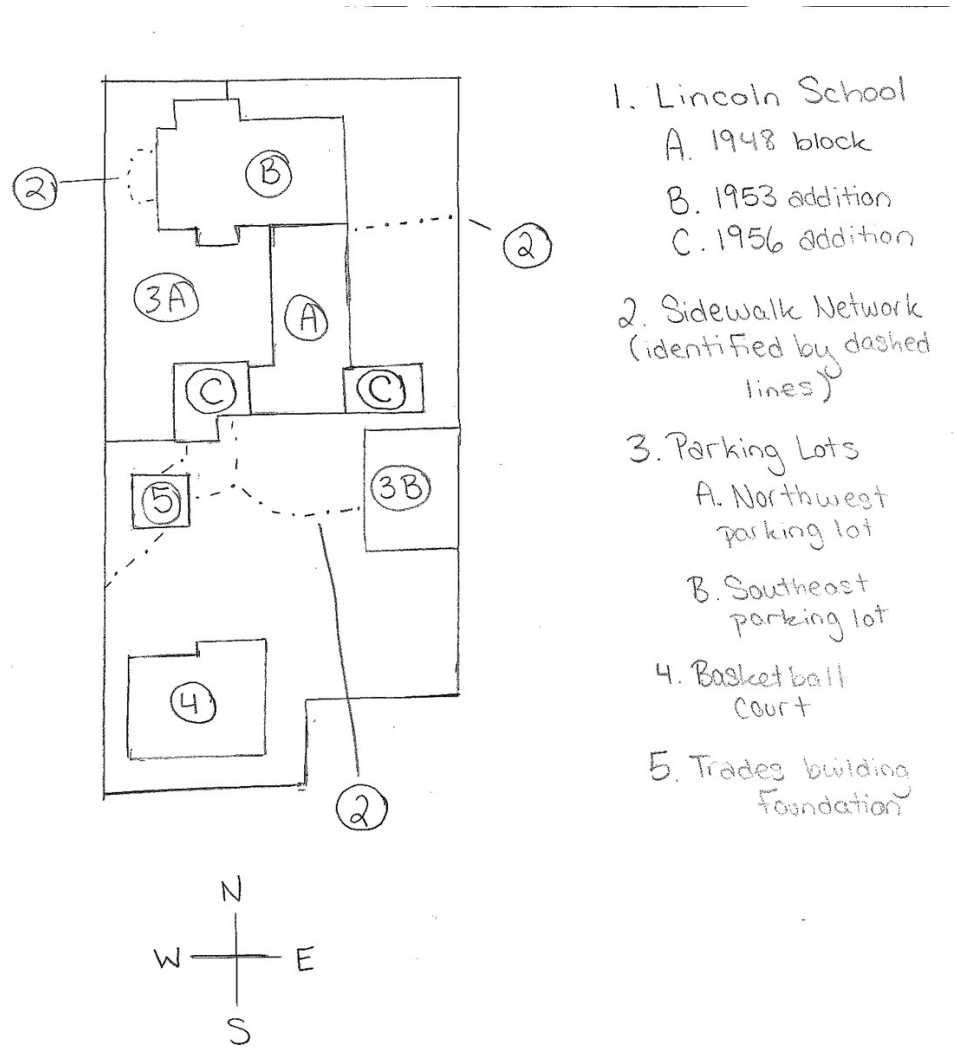 1. Lincoln School
A. 1948 block
B. 1953 addition
C. 1956 addition
2. Sidewalk Network
(identified by dashed
lines)
3. Parking Lots
A. Northwest
parking lot
B. Southeast
parking lot
4. Basketball
Court
5. Trades building
Foundation
2
B
2
3A
A
C
C
5
3B
4
2
N
W E
S